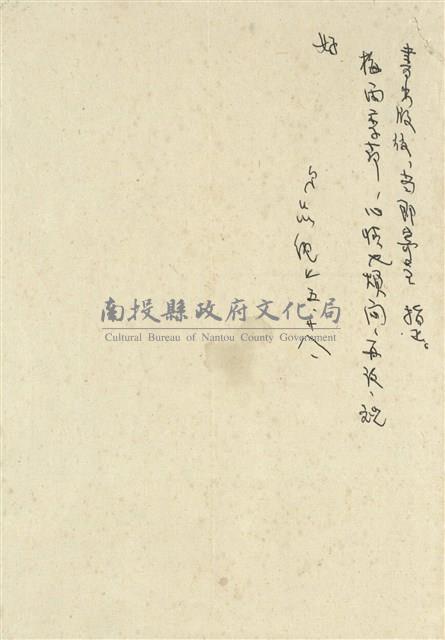 書出版後，當即寄呈 指正。
梅雨季節，心情也煩悶，再談，祝
好
上 五.十八
南投縣政府文化局
Cultural Bureau of Nantou County Government